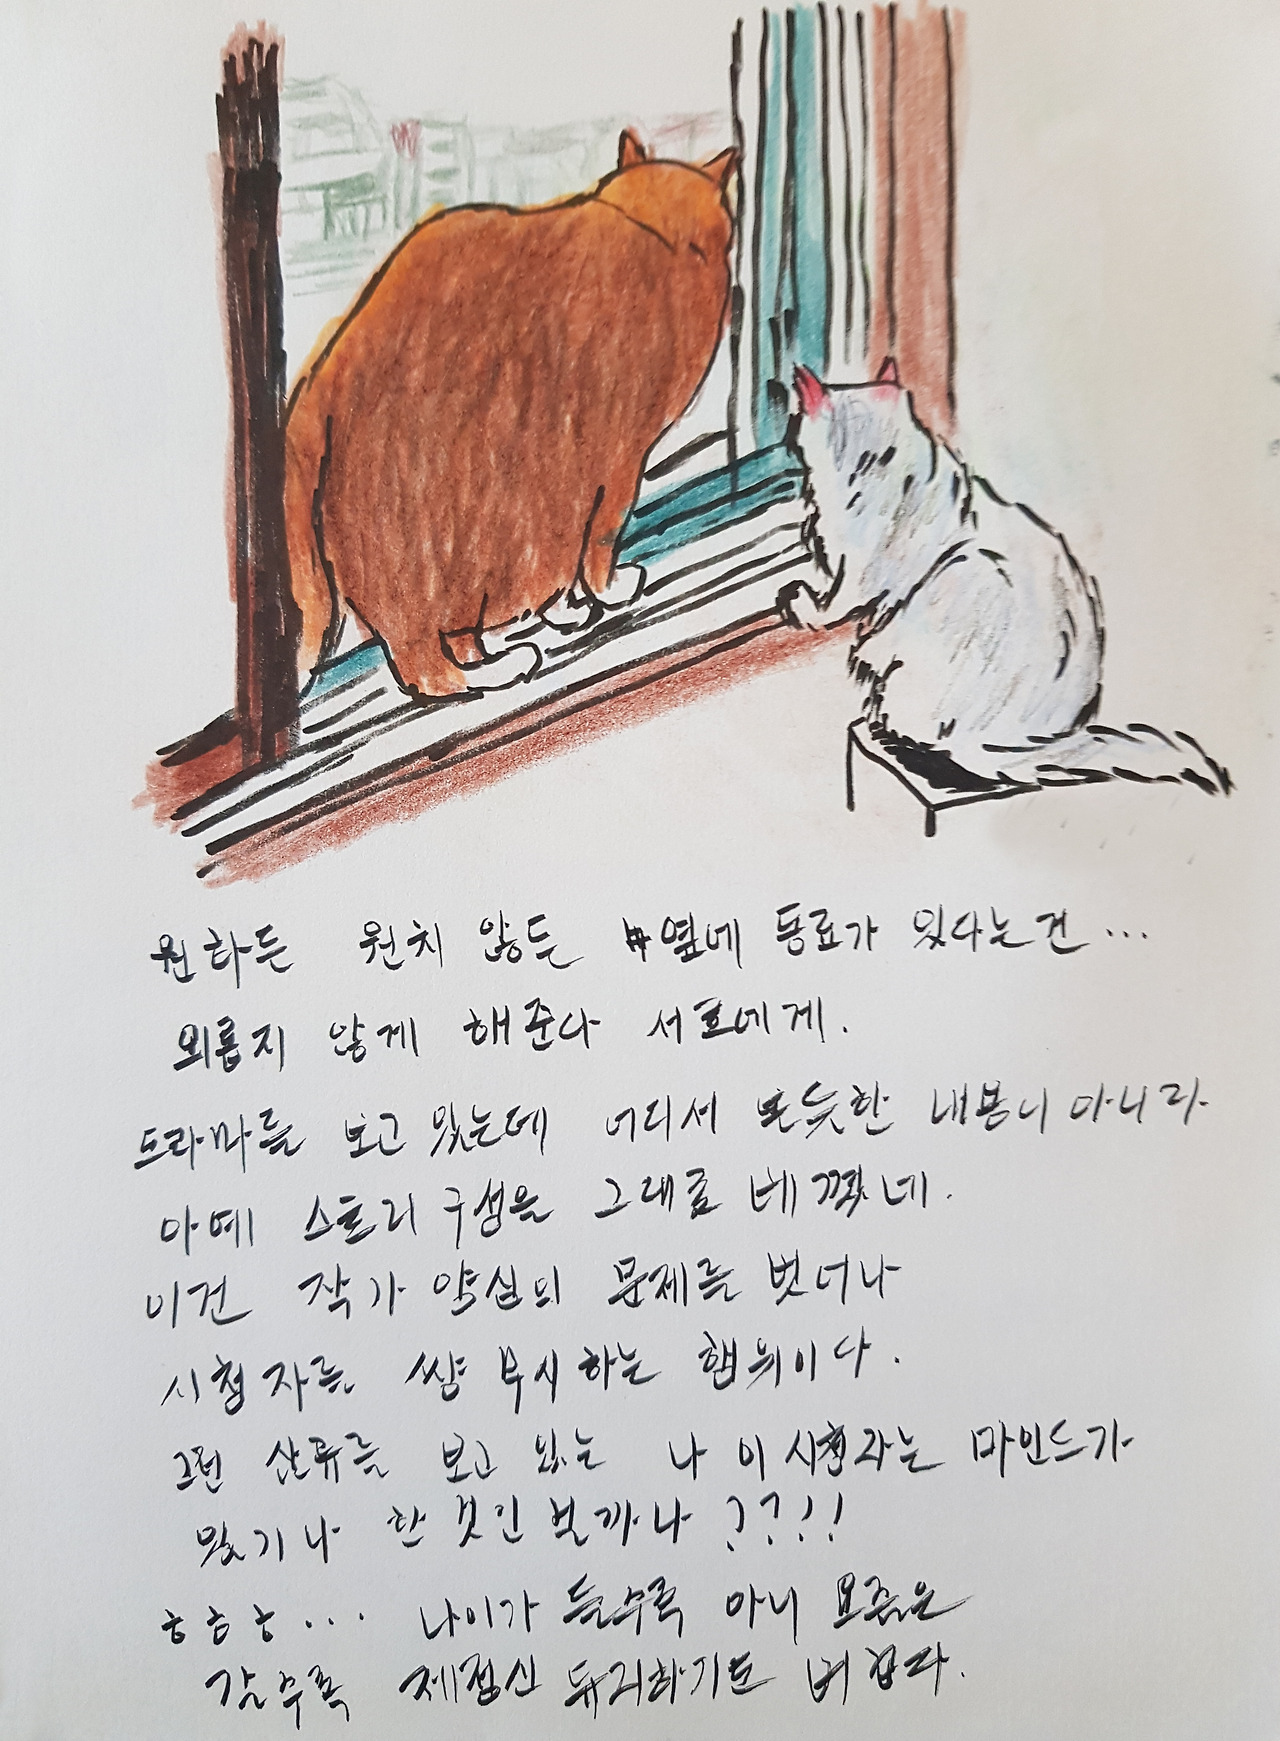 원하든 원치 않든 옆에 동료가 있다는 건...
외롭지 않게 해준다 서로에게.
드라마를 보고 있는데 어디서 본듯한 내용이 아니라
아예 스토리 구성을 그대로 베꼈네.
이건 작가 양심의 문제를 벗어나
시청자를 쌩 무시하는 행위이다.
그런 삼류를 보고 있는 나 이 시청자는 마인드가
있기나 한 것인 볼까나 ??!!
ㅎㅎㅎ... 나이가 들수록 아니 요즘은
갈수록 제정신 유지하기도 버겁다.